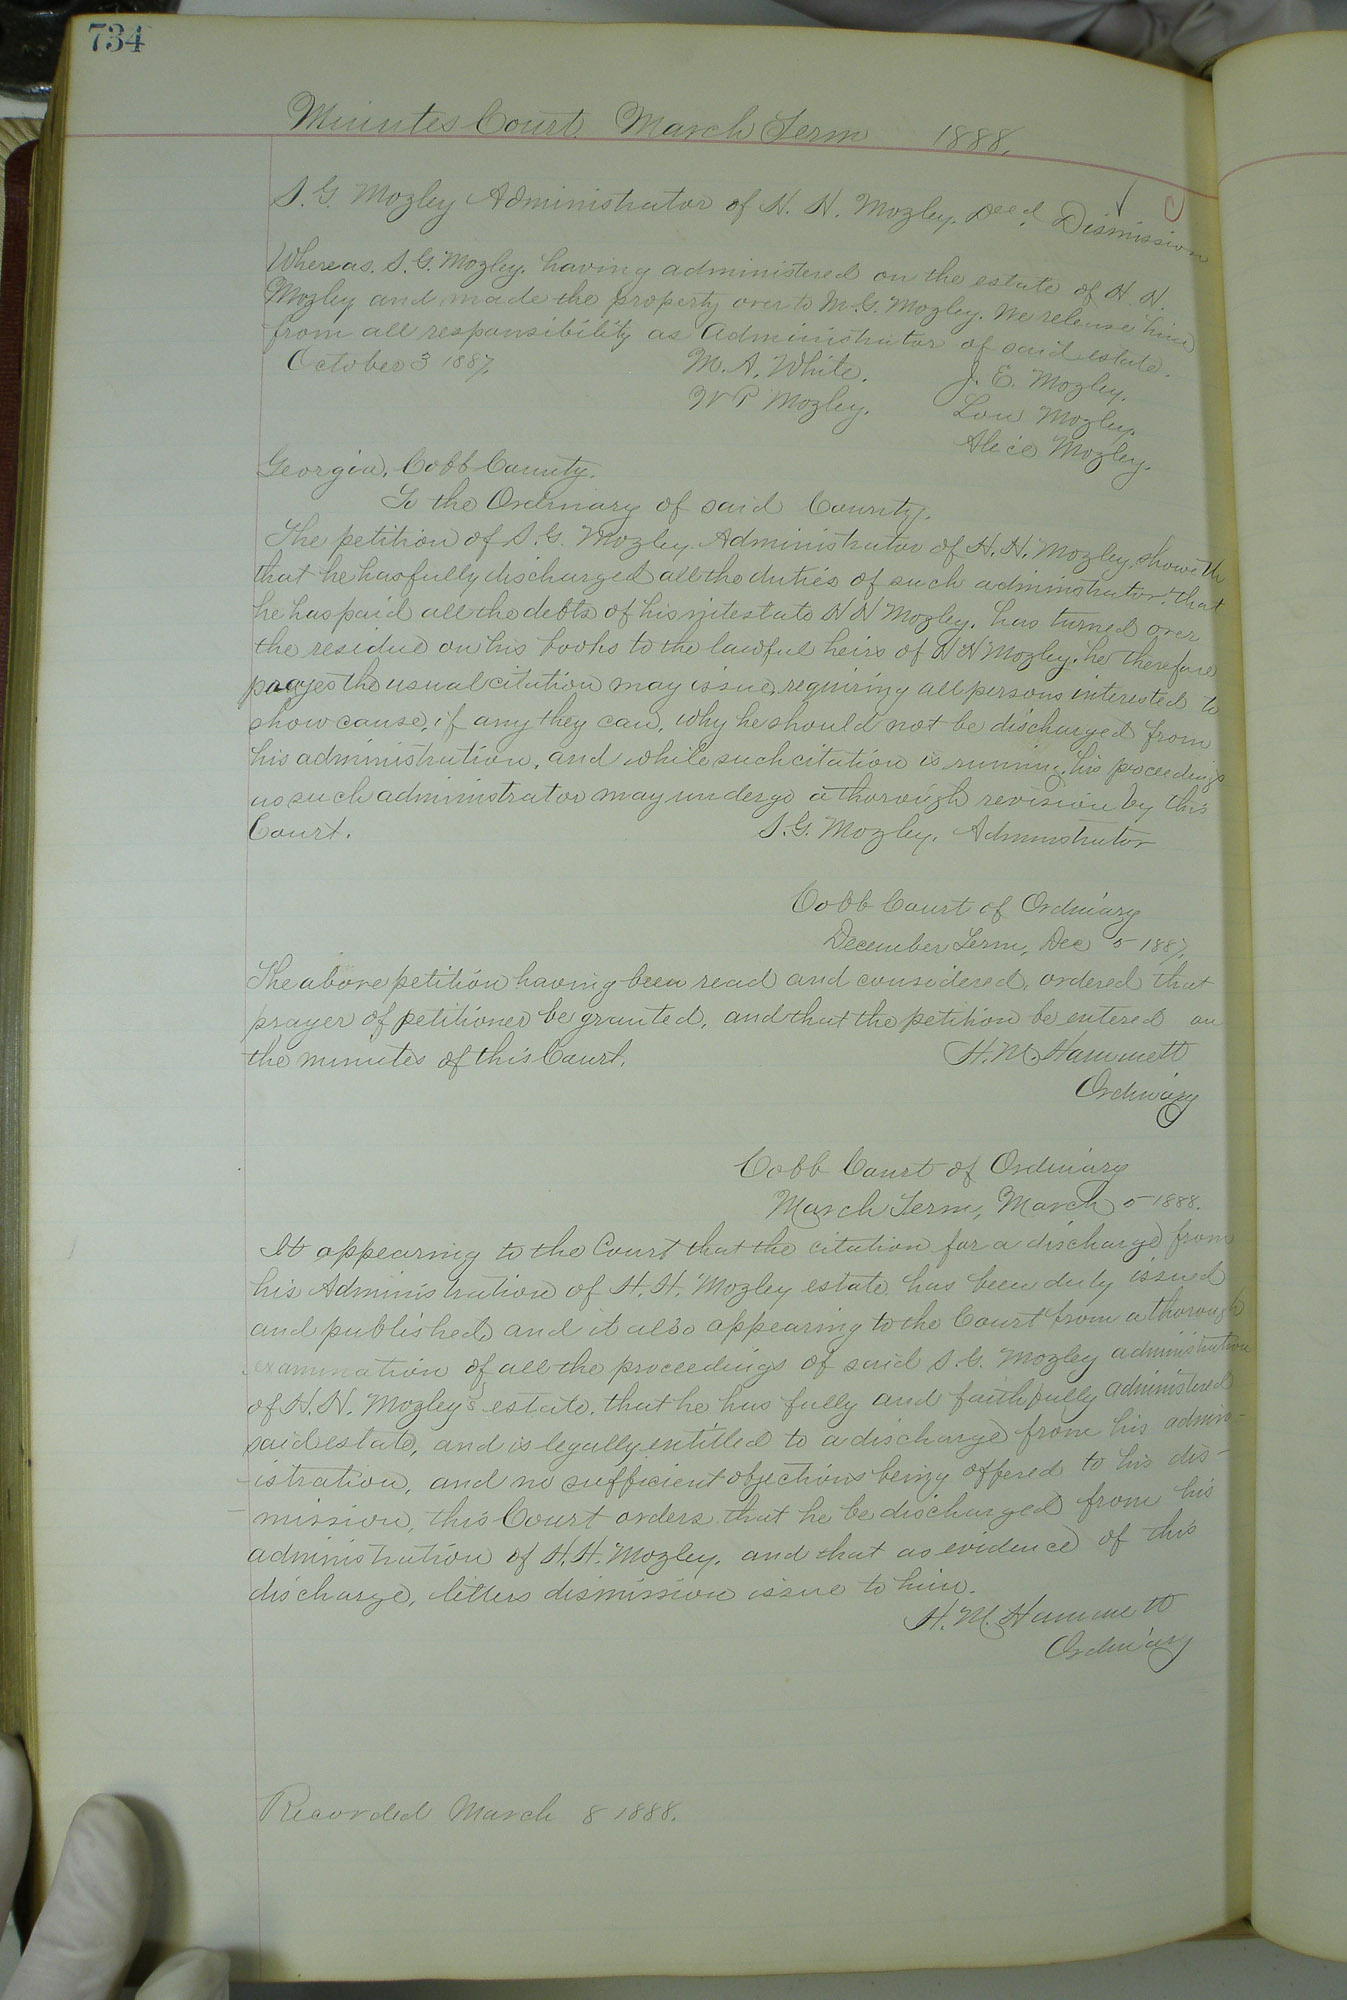 734
Minutes Court March Term 1888,
S. G. Mozley Administrator of H. N. Mozley, Dec'd. Dismission
Whereas, S. G. Mozley, having administered on the estate of H. N.
Mozley and made the property over to M. G. Mozley. We release him
from all responsibility as Administrator of said estate.
October 3 1887,
M. A. White. J. E. Mozley.
W P Mozley. Lou Mozley.
Alice Mozley.
Georgia, Cobb County.
To the Ordinary of said County.
The petition of S. G. Mozley Administrator of H. N. Mozley, showeth
that he has fully discharged all the duties of such administrator, that
he has paid all the debts of his intestate H N Mozley, has turned over
the residue on his books to the lawful heirs of H N Mozley, he therefore
prays the usual citation may issue, requiring all persons interested to
show cause, if any they can, why he should not be discharged from
his administration, and while such citation is running, his proceedings
as such administrator may undergo a thorough revision by this
Court. S. G. Mozley, Administrator
Cobb Court of Ordinary
December Term, Dec 5 1887,
The above petition having been read and considered, ordered that
prayer of petitioner be granted, and that the petition be entered on
the minutes of this Court. H. M. Hammett
Ordinary
Cobb Court of Ordinary
March Term, March 5 1888.
It appearing to the Court that the citation for a discharge from
his Administration of H. H. Mozley estate has been duly issued
and published, and it also appearing to the Court from a thorough
examination of all the proceedings of said S. G. Mozley administration
of H. N. Mozley's estate, that he has fully and faithfully administered
said estate, and is legally entitled to a discharge from his admin-
-istration, and no sufficient objections being offered to his dis-
-mission, this Court orders that he be discharged from his
administration of H. H. Mozley, and that as evidence of this
discharge, letters dismission issue to him.
H. M. Hammett
Ordinary
Recorded March 8 1888.